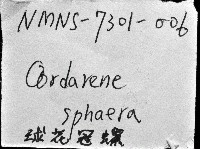 NMNS-7301-006
Cordarene
sphaera
球花冠螺